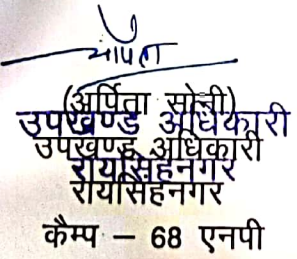 अर्पिता
(अर्पिता सोनी)
उपखण्ड अधिकारी
उपखण्ड अधिकारी
रायसिंहनगर
रायसिंहनगर
कैम्प – 68 एनपी